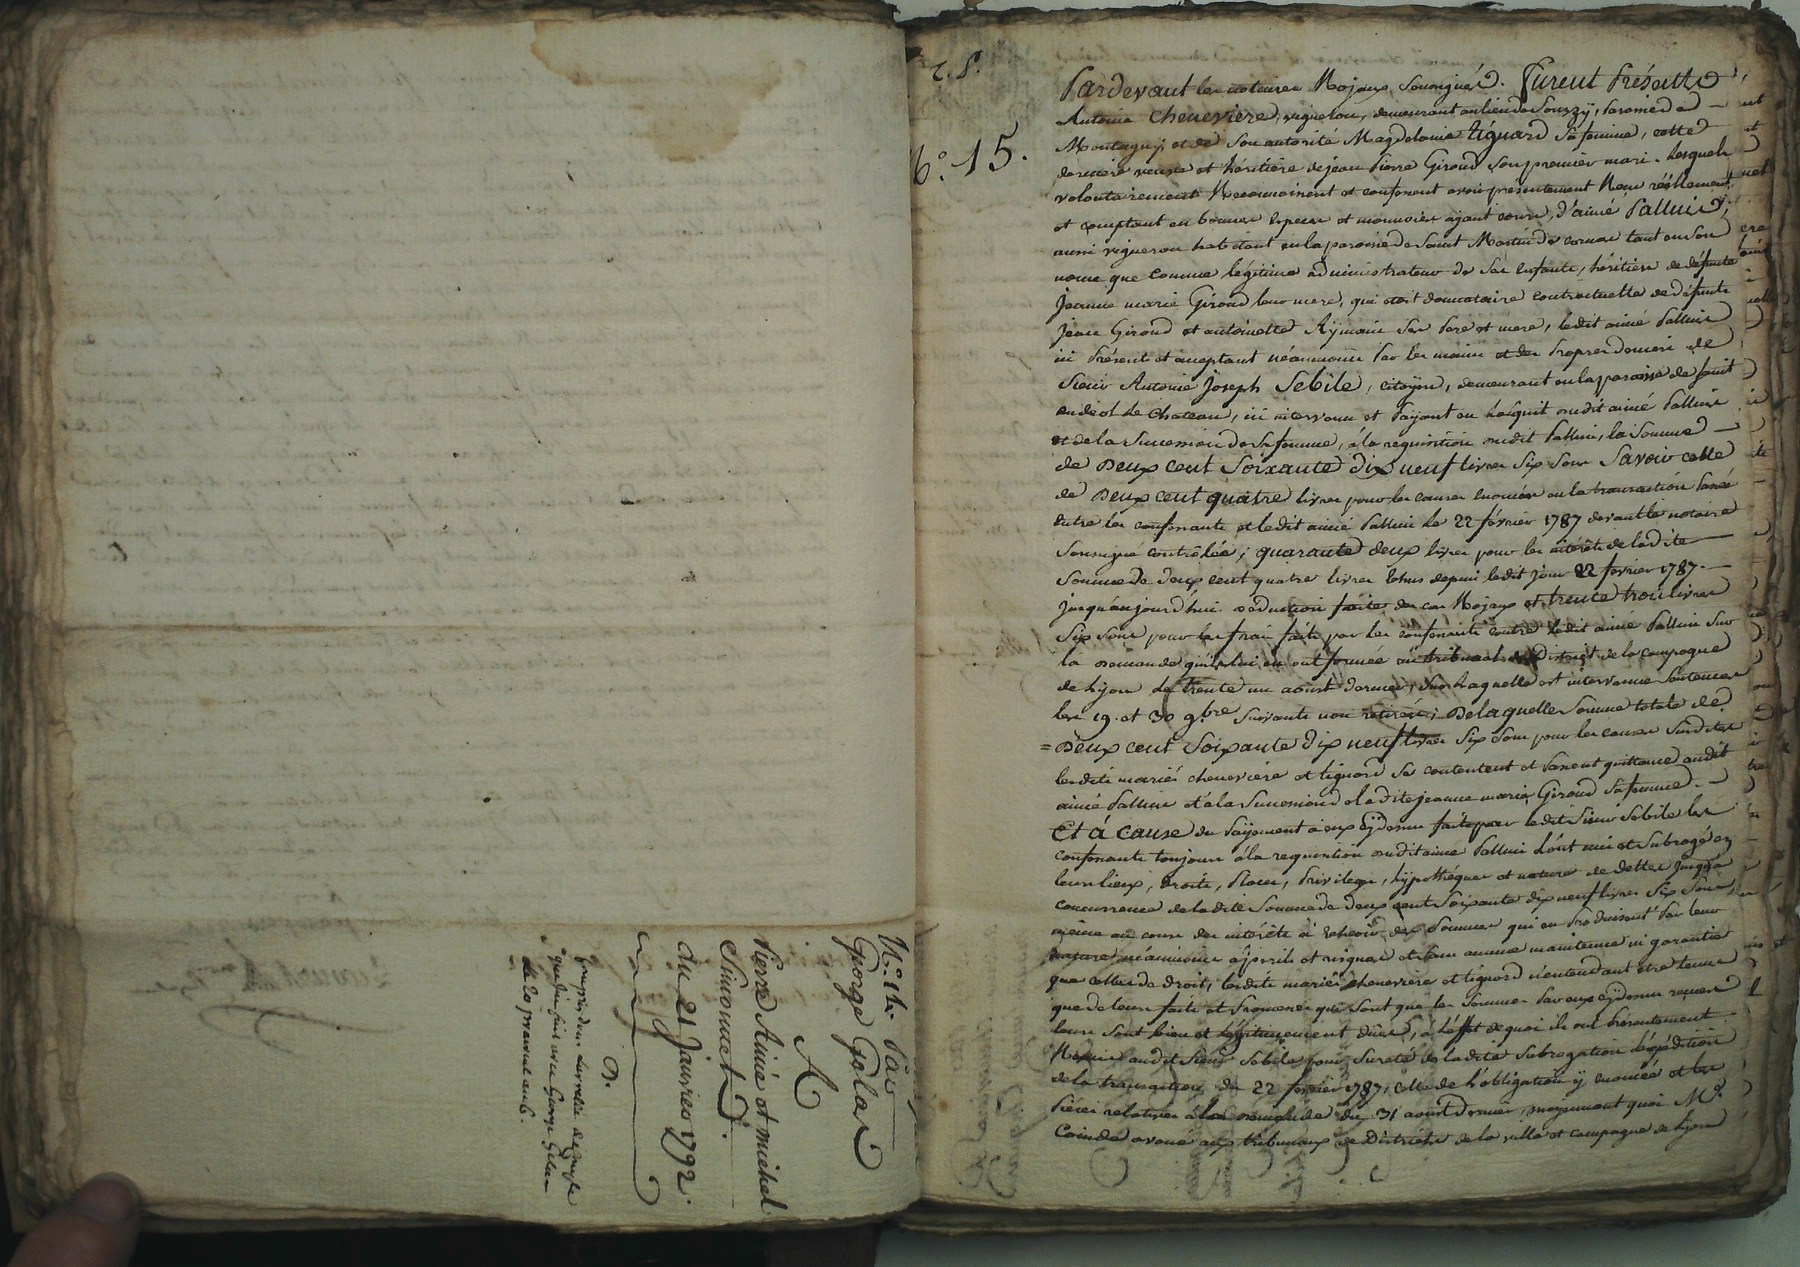 N.° 14. Par
George Gelas
A
Pierre Aimé et michel
Simonnet D.
du 21 Janvier 1792.
D.
que dix fait avec George Gelas
de 20 prairial an 6.
2. S.
N.° 15.
Pardevant les notaires Royaux Soussignés. Furent Présents
Antoine Chenevière, vigneron, demeurant au lieu de Souzy, Paroisse de
Montagny, et de Son autorité Magdelaine Liguard Sa femme, cette
derniere veuve et héritière de jean Pierre Giroud Son premier mari. Lesquels
volontairement Reconnoissent et confessent avoir présentement Reçu réellement
et comptant en bonnes especes et monnoies ayant cours, d'aimé Palluis,
aussi vigneron habitant en la paroisse de Saint Martin de cornas tant en Son
nom que Comme légitime administrateur de Ses enfants, héritiers de défunte
Jeanne marie Giroud leur mere, qui étoit donnataire contractuelle de défunts
Jean Giroud et antoinette Aymain Ses Pere et mere, ledit aimé Palluis
ici Présent et acceptant néanmoins Par les mains et des Propres deniers de
Sieur Antoine Joseph Sebile, citoyen, demeurant en la paroisse de Saint
andéol Le Chateau, ici intervenu et Payant en L'acquit dudit aimé Palluis
et de la Succession de Sa femme, à la requisition dudit Palluis, la Somme
de Deux cent Soixante dix neuf livres Six Sous Savoir celle
de Deux cent quatre livres pour les causes énoncées en la transaction Passée
entre les confessants et ledit aimé Palluis Le 22 février 1787 devant le notaire
Soussigné contrôlée; quarante deux livres pour les intérêts de ladite
Somme de deux cent quatre livres échus depuis ledit jour 22 fevrier 1787.
jusqu'aujourd'hui déduction faite des cas Royaux et trente trois livres
Six Sous pour les frais faits par les confessants contre ledit aimé Palluis Sur
la demande qu'ils lui en ont formée au tribunal de District de la campagne
de Lyon Le trente un aoust dernier, Sur Laquelle est intervenue Sentences
les 19. et 30 9.bre Suivants non retirées; De laquelle Somme totale de
= Deux cent Soixante dix neuf livres Six Sous pour les causes Susdites
lesdits mariés chenevière et liguard Se contentent et Passent quittance audit
aimé Palluis et à la Succession de ladite jeanne marie Giroud Sa femme.
Et à Cause du Payement à eux cydessus fait par ledit Sieur Sebile les
confessants toujours à la requisition dudit aimé Palluis L'ont mis et Subrogé en
leurs lieux, droits, Places, Privileges, hypothéques et nature de dettes jusqu'à
concurrence de ladite Somme de deux cent Soixante dix neuf livres Six Sous,
même au cours des intérêts à échoir des Sommes qui en Produisent Par leur
nature néanmoins à Périls et risques et Sans aucune maintenue ni garantie
que celles de droit, lesdits mariés chenevière et liguard n'entendant etre tenus
que de leurs faits et Promesses qui Sont que les Sommes Par eux cydessus reçues
leurs Sont bien et légitimement dües, à L'effet de quoi ils ont Présentement
Remis audit Sieur Sebile pour Sureté de ladite Subrogation L'expédition
de la transaction du 22 fevrier 1787, celle de L'obligation y énoncée et les
Pièces relatives à la demande du 31 aoust Dernier, moyennant quoi M.e
Coindé avoué aux tribunaux de Districts de la ville et campagne de Lyon